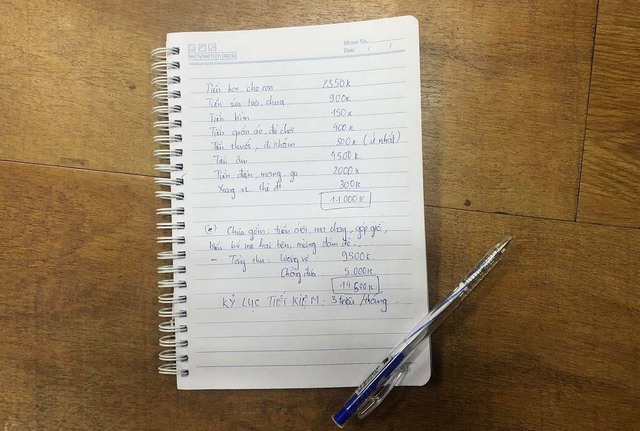 Memo No.
Date / /
Mo Tu We Th Fr Sa Su
Tiền học cho con 2350k
Tiền sữa tươi, chua 900k
Tiền bỉm 150k
Tiền quần áo, đồ chơi 400k
Tiền thuốc, đi khám 500k (ít nhất)
Tiền ăn 4500k
Tiền điện, mạng, ga 2000k
Xăng xe, thẻ đt 300k
11.000k
Chưa gồm: tiền cưới, ma chay, góp giỗ,
biếu bố mẹ hai bên, mừng đám đẻ...
- Tổng thu: Lương vợ 9500k
Chồng đưa 5.000k
14.500k
KỶ LỤC TIẾT KIỆM: 3 triệu/tháng.